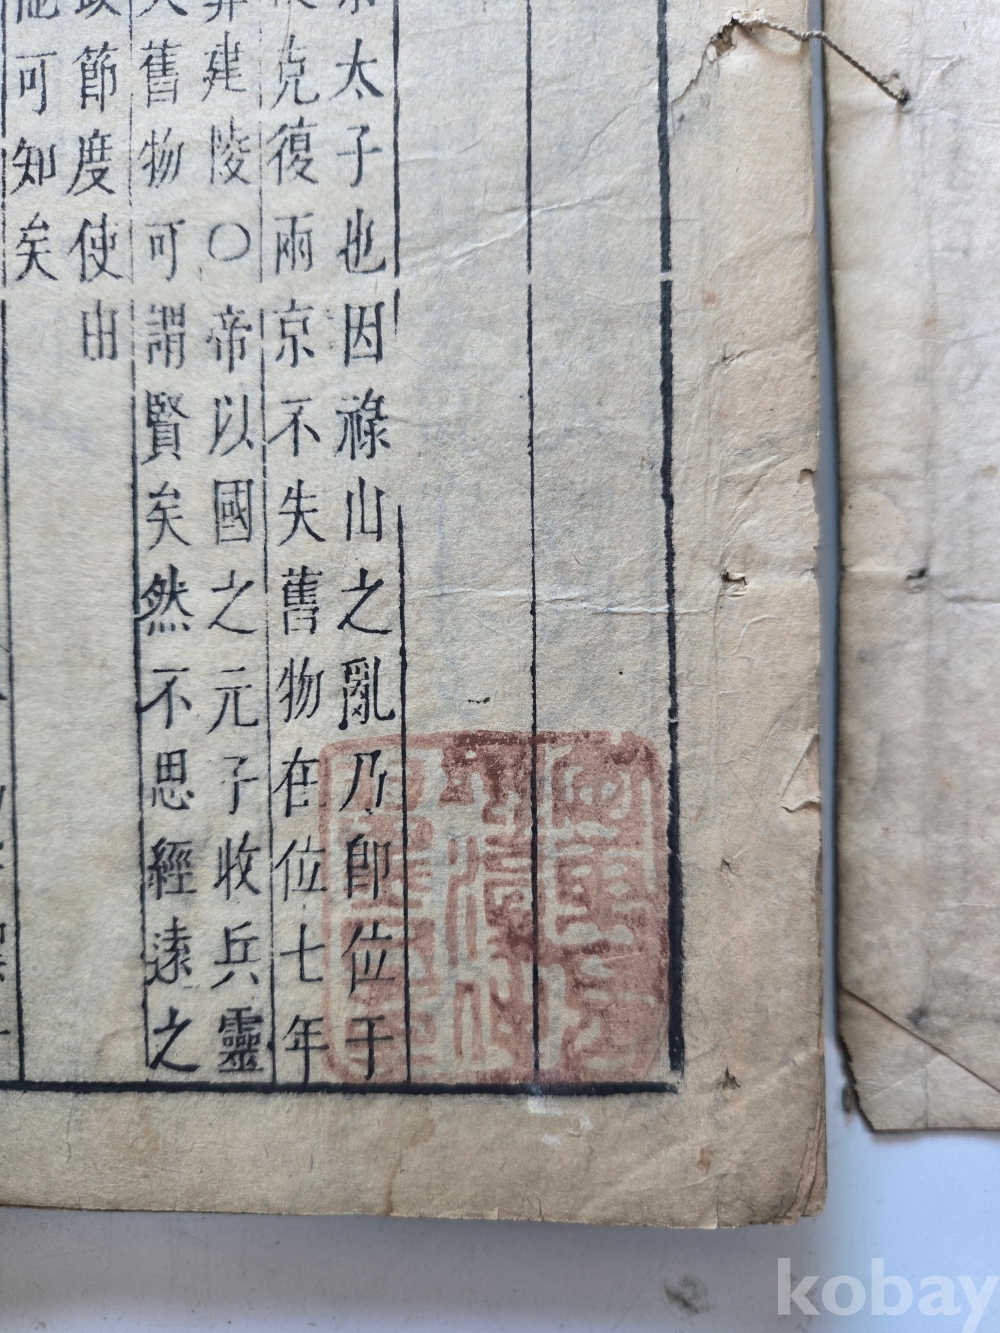 太子也因祿山之亂乃卽位于
克復兩京不失舊物在位七年
建陵〇帝以國之元子收兵靈
舊物可謂賢矣然不思經遠之
節度使由
可知矣
kobay